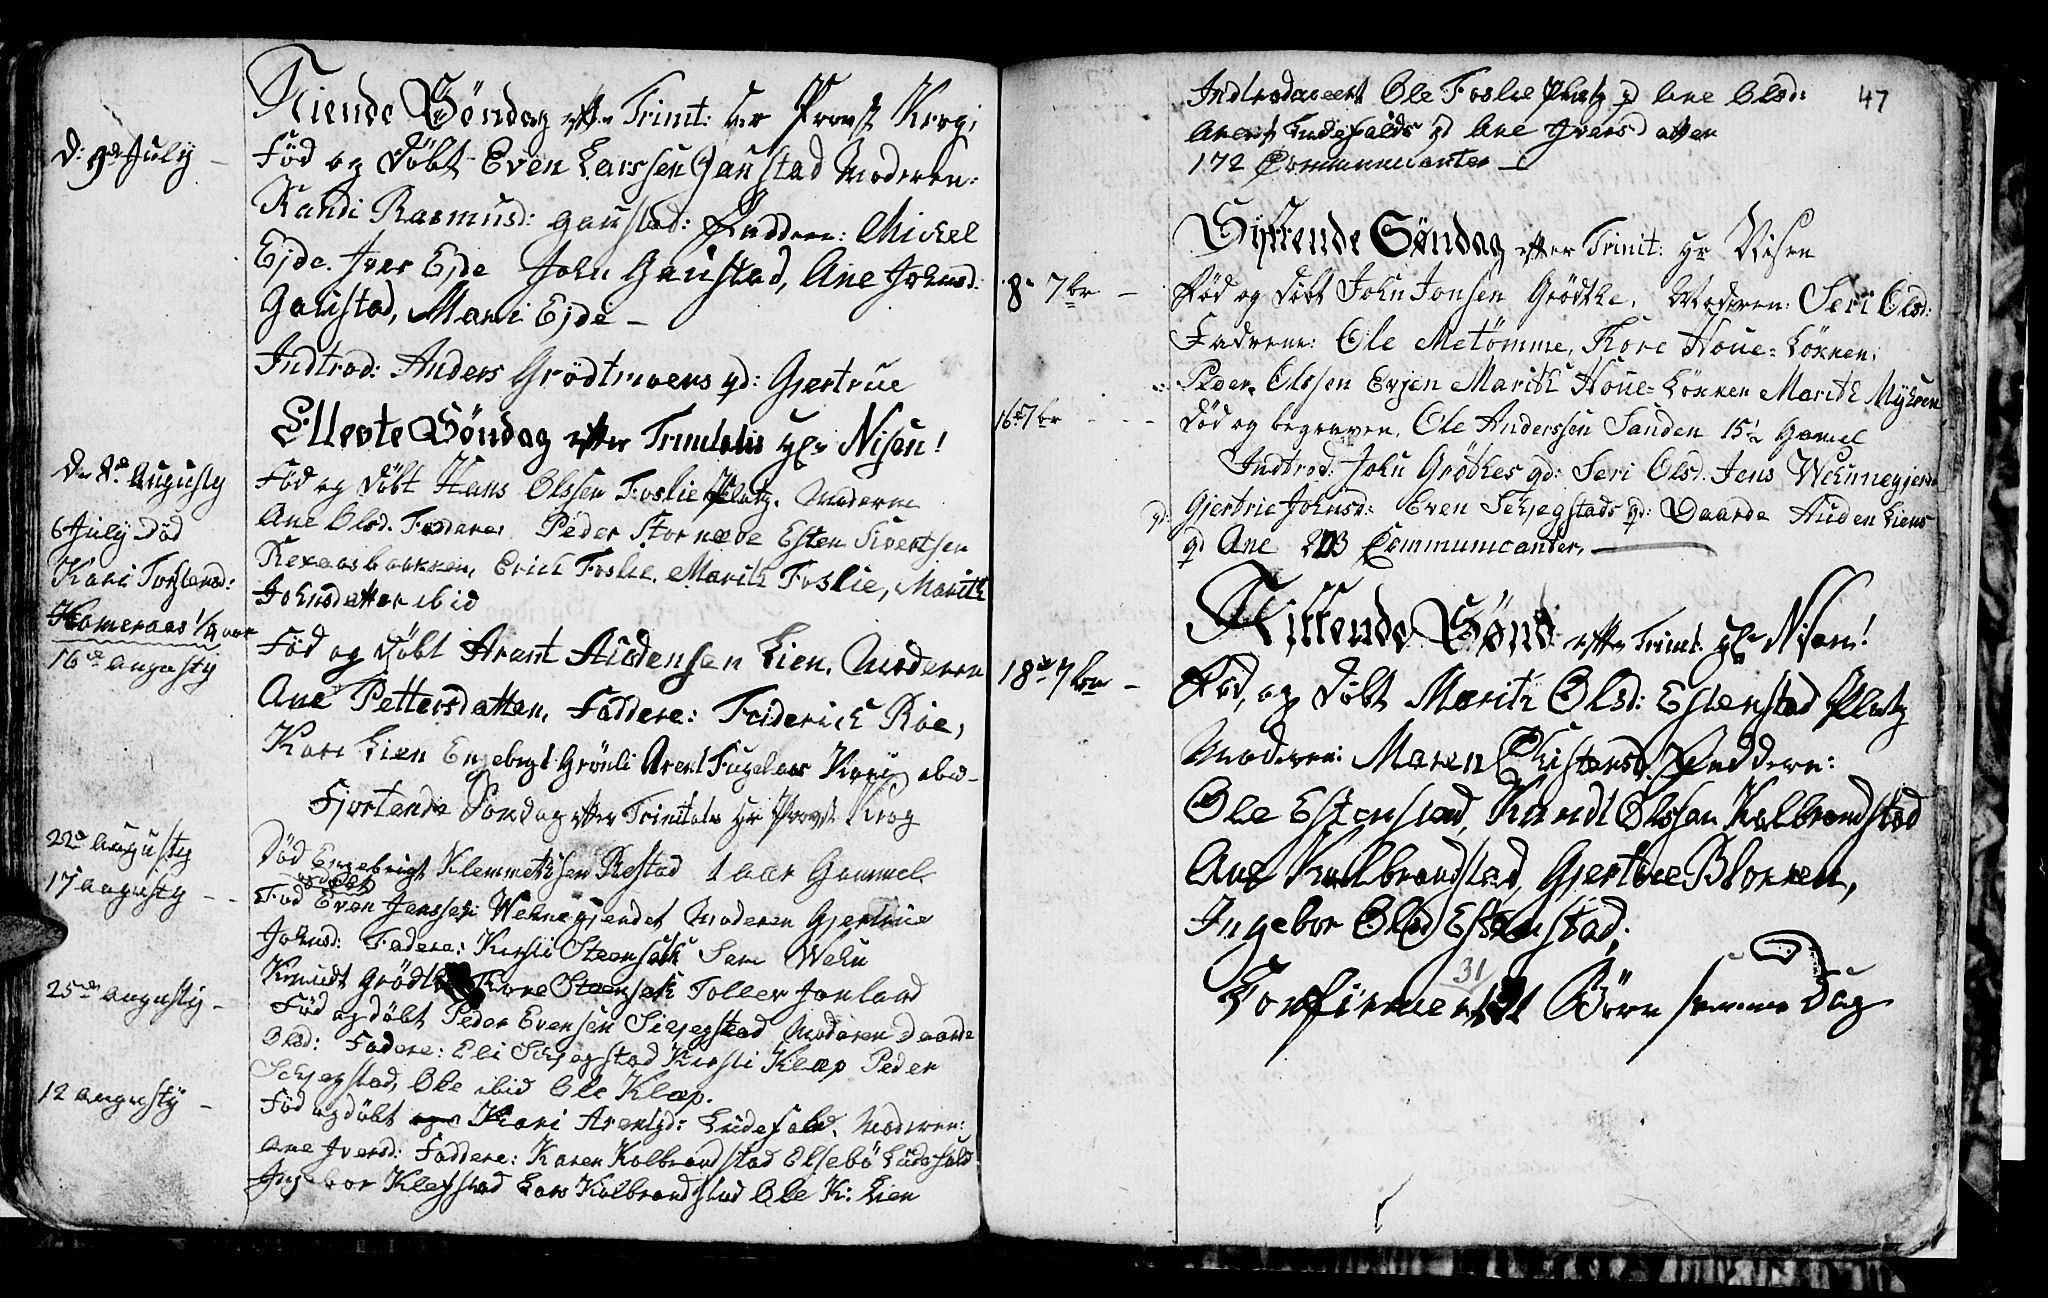 Niende Söndag efter Trinit: Her Provst Krog,
D: 9de July
Föd og döbt Even Larssen Gaustad Moderen:
Randi Rasmusd: Gaustad: Faddere: Mickel
Ejde. Iver Ejde John Gaustad, Ane Johnsd:
Gaustad, Mari Ejde
Introd: Anders Grödtmoens qd: Gjertrue
Ellevte Söndag efter Trinitatis Hr Nisen!
D: 8de Augusty
Föd og döbt Hans Olssen Foslie Platz. Moderen
Ane Olsd. Fadere: Peder Stornæve Esten Sivertsen
6 July död
Kari Torstensd:
Kameraas 1/4 aar
Rexaasbakken, Erich Foslie, Marith Foslie, Marith
Johnsdatter ibid
16de augusty
Föd og döbt Arent Audensen Lien, Moderen
Ane Pettersdatten, Faddere: Friderich Roe,
Kari Lien Engebrigt Grönli Arent Fuglaas Kari ibid
Fjortende Söndag efter Trinitatis Hr Provst Krog
22de augusty
Död Engebrigt Klemmetsen Restad 1 aar Gammel
17 augusty
og döbt
Föd Even Jenssen Wehnegjerdet Moderen Gjertrue
Johnsd: Fadere: Kirsti Steensæth Sem Wehn
Knudt Grödthe Kore Steensæth Toller Jonland
25de augusty
Föd og döbt Peder Evensen Siejegstad Moderen Daarde
Olsd: Fadere: Eli Schjegstad Kirsti Klæp Peder
Schjegstad, Ole ibid Ole Klæp.
12 augusty
Föd og döbt Kari Arentsd: Ludefald, Moderen:
Ane Iversd: Faddere: Karen Kolbrandstad Elsebö Ludefald
Ingebor Klefstad Lars Kolbrandstad Ole K: Lien
47
Indtroduceert Ole Foslie Platz qd Ane Olsd:
Arent Ludefalds qd Ane Iversdatter
172 Communicanter
Syttende Söndag efter Trinit: Hr Nisen
8de 7br
Föd og döbt John Jonsen Grödthe. Moderen: Seri Olsd:
Fadrene: Ole Metömme, Kore Houe-Lökken,
Peder Olssen Evjen Marith Houe-Lökken Marith Myhren
16de 7br
död og begraven, Ole Anderssen Sanden 15 1/2 Gamel
Indtrod: John Grödhes qd: Seri Olsd. Jens Wehnnegjerdes
qd: Gjertrie Johnsd: Even Schjegstads qd: Daarde Auden Liens
qd Ane 203 Communicanter,
Nittende Sönd: efter Trinit. Hr Nisen!
18de 7br
Föd, og döbt Marith Olsd: Estenstad Platz
Moderen: Maren Christensd: Faddere:
Ole Estenstad, Randi Olssen Kolbrandstad
Ane Kulbrandstad, Gjertrue Blokken,
Ingebor Olsd Estenstad;
31
Confirmerit Börn samme Dag